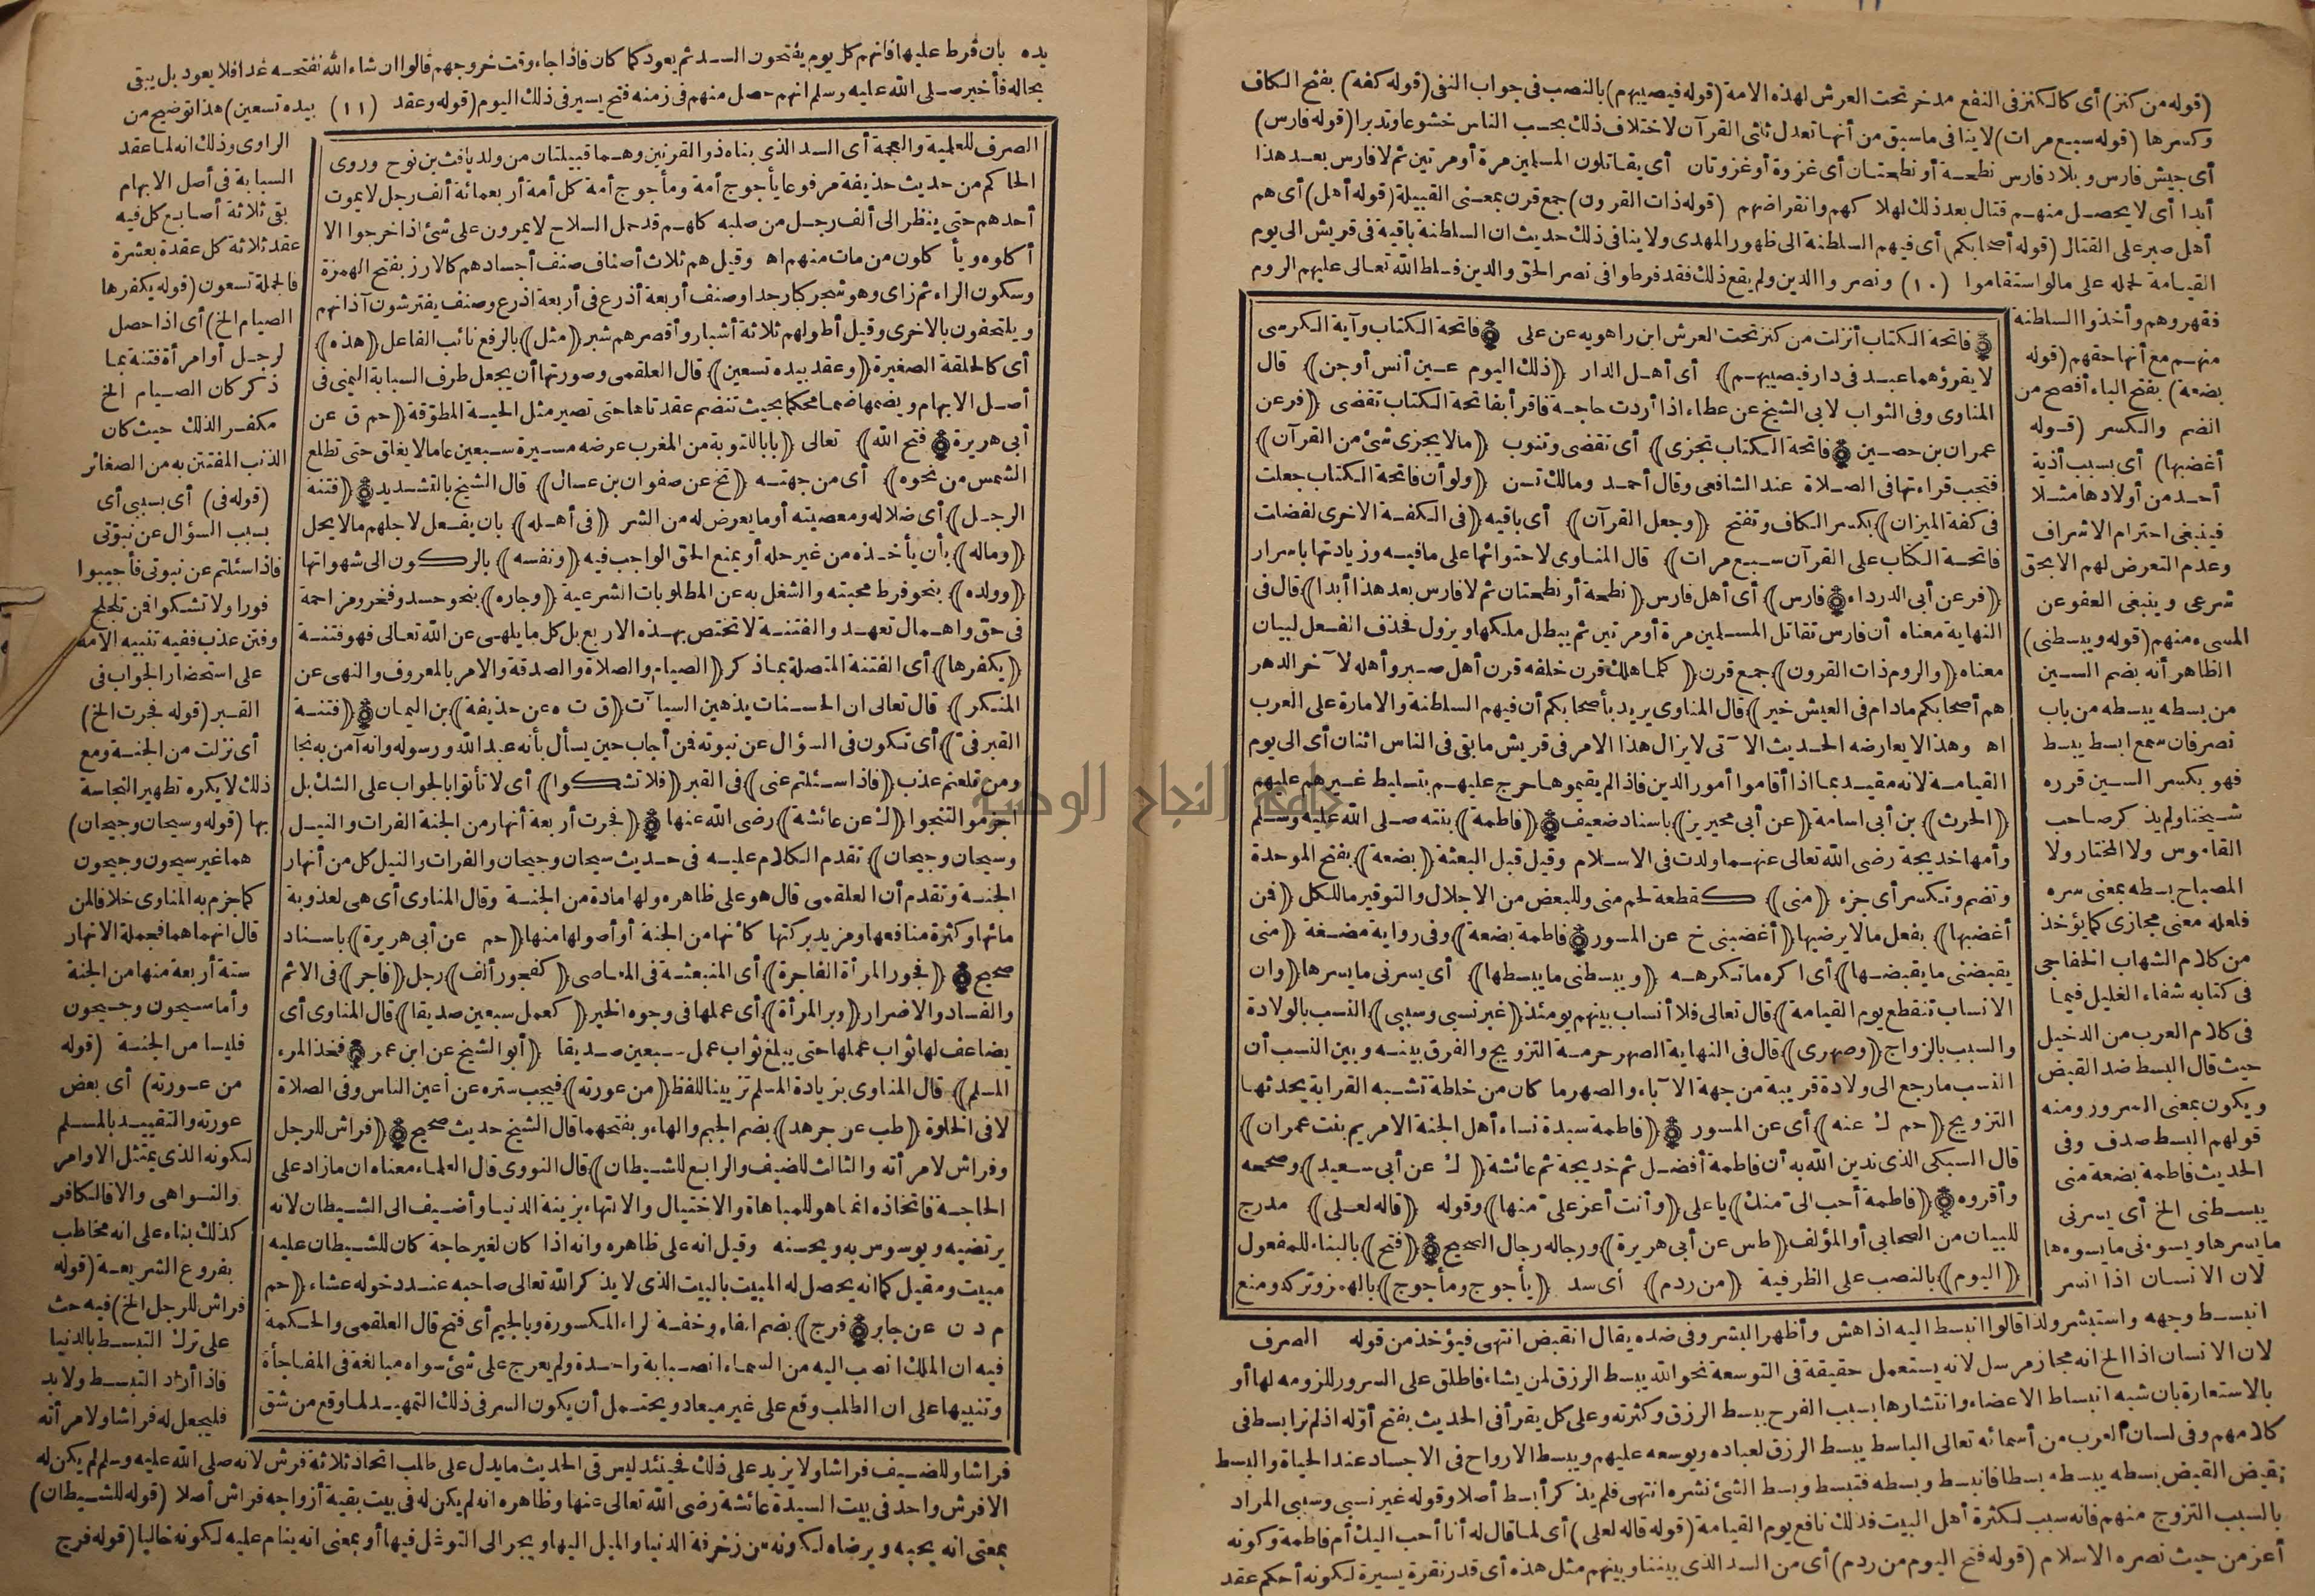 (قوله من كنز) أى كالكنز فى النفع مدخر تحت العرش لهذه الامة (قوله فيصيبهم) بالنصب فى جواب النفى (قوله كفة) بفتح الكاف
وكسرها (قوله سبع مرات) لا ينافى ماسبق من أنها تعدل ثلثى القرآن لاختلاف ذلك بحسب الناس خشوعا وتدبرا (قوله فارس)
أى جيش فارس وبلاد فارس نطحة أو نطحتان أى غزوة أو غزوتان أى يقاتلون المسلمين مرة أو مرتين ثم لا فارس بعد هذا
أبدا أى لا يحصل منهم قتال بعد ذلك لهلاكهم وانقراضهم (قوله ذات القرون) جمع قرن بمعنى القبيلة (قوله أهل) أى هم
أهل صبر على القتال (قوله أصحابكم) أى فيهم السلطنة الى ظهور المهدى ولا ينافى ذلك حديث ان السلطنة باقية فى قريش الى يوم
القيامة لحمله على مالو استقاموا (١٠) ونصروا الدين ولم يقع ذلك فقد فرطوا فى نصر الحق والدين فسلط الله تعالى عليهم الروم
فقهروهم وأخذوا السلطنة
منهم مع أنها حقهم (قوله
بضعة) بفتح الباء أفصح من
الضم والكسر (قوله
أغضبها) أى بسبب أذية
أحد من أولادها مثلا
فينبغى احترام الاشراف
وعدم التعرض لهم الا بحق
شرعى وينبغى العفو عن
المسىء منهم (قوله ويبسطنى)
الظاهر أنه بضم السين
من بسطه يبسطه من باب
نصر فان سمع ابسط يبسط
فهو بكسر السين قرره
شيخنا ولم يذكر صاحب
القاموس ولا المختار ولا
المصباح بسطه بمعنى سره
فلعله معنى مجازى كما يؤخذ
من كلام الشهاب الخفاجى
فى كتابه شفاء الغليل فيما
فى كلام العرب من الدخيل
حيث قال البسط ضد القبض
ويكون بمعنى السرور ومنه
قولهم البسط صدف وفى
الحديث فاطمة بضعة منى
يبسطنى الخ أى يسرنى
ما يسرها ويسوءنى ما يسوءها
لان الانسان اذا انسر
فاتحة الكتاب أنزلت من كنز تحت العرش ابن راهويه عن على فاتحة الكتاب وآية الكرسى
لا يقرؤهما عبد فى دار فيصيبهم) أى أهل الدار (ذلك اليوم عين أنس أو جن) قال
المناوى وفى الثواب لابى الشيخ عن عطاء اذا أردت حاجة فاقرأ بفاتحة الكتاب تقضى (فر عن
عمران بن حصين فاتحة الكتاب تجزى) أى تقضى وتنوب (ما لا يجزى شئ من القرآن)
فتجب قراءتها فى الصلاة عند الشافعى وقال أحمد ومالك تسن (ولو أن فاتحة الكتاب جعلت
فى كفة الميزان) بكسر الكاف وتفتح (وجعل القرآن) أى باقيه (فى الكفة الاخرى لفضلت
فاتحة الكتاب على القرآن سبع مرات) قال المناوى لاحتوائها على ما فيه وزيادتها باسرار
(فر عن أبى الدرداء فارس) أى أهل فارس (نطحة أو نطحتان ثم لا فارس بعد هذا أبدا) قال فى
النهاية معناه أن فارس تقاتل المسلمين مرة أو مرتين ثم يبطل ملكها ويزول فحذف الفعل لبيان
معناه (والروم ذات القرون) جمع قرن (كلما هلك قرن خلفه قرن أهل صبر وأهله لآخر الدهر
هم أصحابكم مادام فى العيش خير) قال المناوى يريد بأصحابكم أن فيهم السلطنة والامارة على العرب
اه وهذا لا يعارضه الحديث الآتى لا يزال هذا الامر فى قريش ما بقى فى الناس اثنان أى الى يوم
القيامة لانه مقيد بما اذا أقاموا أمور الدين فاذا لم يقيموها خرج عليهم بتسليط غيرهم عليهم
(الحرث) بن أبى اسامة (عن أبى محيريز) باسناد ضعيف (فاطمة) بنته صلى الله عليه وسلم
وأمها خديجة رضى الله تعالى عنهما ولدت فى الاسلام وقيل قبل البعثة (بضعة) بفتح الموحدة
وتضم وتكسر أى جزء (منى) كقطعة لحم منى وللبعض من الاجلال والتوقير ما للكل (فمن
أغضبها) بفعل مالا يرضيها (أغضبنى خ عن المسور فاطمة بضعة) وفى رواية مضغة (منى
يقبضنى ما يقبضها) أى اكره ما تكرهه (ويبسطنى ما يبسطها) أى يسرنى ما يسرها (وان
الانساب تنقطع يوم القيامة) قال تعالى فلا أنساب بينهم يومئذ (غير نسبى وسببى) النسب بالولادة
والسبب بالزواج (وصهرى) قال فى النهاية الصهر حرمة التزويج والفرق بينه وبين النسب أن
النسب ما رجع الى ولادة قريبة من جهة الآباء والصهر ما كان من خلطة تشبه القرابة يحدثها
التزويج (حم ك عنه) أى عن المسور (فاطمة سيدة نساء أهل الجنة الا مريم بنت عمران)
قال السبكى الذى ندين الله به أن فاطمة أفضل ثم خديجة ثم عائشة (ك عن أبى سعيد) وصححه
وأقروه (فاطمة أحب الىّ منك) يا على (وأنت أعز علىّ منها) وقوله (قاله لعلى) مدرج
للبيان من الصحابى أو المؤلف (طس عن أبى هريرة) ورجاله رجال الصحيح (فتح) بالبناء للمفعول
(اليوم) بالنصب على الظرفية (من ردم) أى سد (يأجوج ومأجوج) بالهمز وتركه ومنع
انبسط وجهه واستبشر ولذا قالوا انبسط اليه اذا هش وأظهر البشر وفى ضده يقال انقبض انتهى فيؤخذ من قوله الصرف
لان الانسان اذا الخ انه مجاز مرسل لانه يستعمل حقيقة فى التوسعة نحو الله يبسط الرزق لمن يشاء فاطلق على السرور للزومه لها أو
بالاستعارة بان شبه انبساط الاعضاء وانتشارها بسبب الفرح ببسط الرزق وكثرته وعلى كل يقرأ فى الحديث بفتح أوّله اذ لم نر ابسط فى
كلامهم وفى لسان العرب من أسمائه تعالى الباسط يبسط الرزق لعباده ويوسعه عليهم ويبسط الارواح فى الاجساد عند الحياة والبسط
نقيض القبض بسطه يبسطه بسطا فانبسط وبسطه فتبسط وبسط الشئ نشره انتهى فلم يذكر أبسط أصلا وقوله غير نسبى وسببى المراد
بالسبب التزوج منهم فانه سبب لكثرة أهل البيت فذلك نافع يوم القيامة (قوله قاله لعلى) أى لما قال له أنا أحب اليك أم فاطمة وكونه
أعز من حيث نصره الاسلام (قوله فتح اليوم من ردم) أى من السد الذى بيننا وبينهم مثل هذه أى قدر نقرة يسيرة لكونه أحكم عقد
يده بان فرط عليها فانهم كل يوم يفتحون السد ثم يعود كما كان فاذا جاء وقت خروجهم قالوا ان شاء الله نفتحه غدا فلا يعود بل يبقى
بحاله فأخبر صلى الله عليه وسلم انهم حصل منهم فى زمنه فتح يسير فى ذلك اليوم (قوله وعقد (١١) بيده تسعين) هذا توضيح من
الراوى وذلك انه لما عقد
السبابة فى أصل الابهام
بقى ثلاثة أصابع كل فيه
عقد ثلاثة كل عقدة بعشرة
فالجملة تسعون (قوله يكفرها
الصيام الخ) أى اذا حصل
لرجل أو امرأة فتنة بما
ذكر كان الصيام الخ
مكفرا لذلك حيث كان
الذنب المفتتن به من الصغائر
(قوله فى) أى بسببى أى
بسبب السؤال عن نبوّتى
فاذا سئلتم عن نبوتى فأجيبوا
فورا ولا تشكوا فمن تلجلج
وفتن عذب ففيه تنبيه الامة
على استحضار الجواب فى
القبر (قوله فجرت الخ)
أى نزلت من الجنة ومع
ذلك لا يكره تطهير النجاسة
بها (قوله وسيحان وجيحان)
هما غير سيحون وجيحون
كما جزم به المناوى خلافا لمن
قال انهما هما فجملة الانهار
ستة أربعة منها من الجنة
وأما سيحون وجيحون
فليسا من الجنة (قوله
من عورته) أى بعض
عورته والتقييد بالمسلم
لكونه الذى يمتثل الاوامر
والنواهى والا فالكافر
كذلك بناء على انه مخاطب
بفروع الشريعة (قوله
فراش للرجل الخ) فيه حث
على ترك التبسط بالدنيا
فاذا أراد التبسط ولا بد
فليجعل له فراشا ولامرأته
الصرف للعلمية والعجمة أى السد الذى بناه ذو القرنين وهما قبيلتان من ولد يافث بن نوح وروى
الحاكم من حديث حذيفة مرفوعا يأجوج أمة ومأجوج أمة كل أمة أربعمائة ألف رجل لا يموت
أحدهم حتى ينظر الى ألف رجل من صلبه كلهم قد حمل السلاح لا يمرون على شئ اذا خرجوا الا
أكلوه ويأكلون من مات منهم اه وقيل هم ثلاث أصناف صنف أجسادهم كالارز بفتح الهمزة
وسكون الراء ثم زاى وهو شجر كبار جدا وصنف أربعة أذرع فى أربعة اذرع وصنف يفترشون آذانهم
ويلتحفون بالاخرى وقيل أطولهم ثلاثة أشبار وأقصرهم شبر (مثل) بالرفع نائب الفاعل (هذه)
أى كالحلقة الصغيرة (وعقد بيده تسعين) قال العلقمى وصورتها أن يجعل طرف السبابة اليمنى فى
أصل الابهام ويضمها ضما محكما بحيث تنضم عقدتاها حتى تصير مثل الحية المطوّقة (حم ق عن
أبى هريرة فتح الله) تعالى (بابا للتوبة من المغرب عرضه مسيرة سبعين عاما لا يغلق حتى تطلع
الشمس من نحوه) أى من جهته (تخ عن صفوان بن عسال) قال الشيخ بالتشديد (فتنة
الرجل) أى ضلاله ومعصيته أو ما يعرض له من الشر (فى أهله) بان يفعل لاجلهم مالا يحل
(وماله) بأن يأخذه من غير حله أو يمنع الحق الواجب فيه (ونفسه) بالركون الى شهواتها
(وولده) بنحو فرط محبته والشغل به عن المطلوبات الشرعية (وجاره) بنحو حسد وفخر ومزاحمة
فى حق واهمال تعهد والفتنة لا تختص بهذه الاربع بل كل ما يلهى عن الله تعالى فهو فتنة
(يكفرها) أى الفتنة المتصلة بما ذكر (الصيام والصلاة والصدقة والامر بالمعروف والنهى عن
المنكر) قال تعالى ان الحسنات يذهبن السيآت (ق ت ه عن حذيفة) بن اليمان (فتنة
القبر فىّ) أى تكون فى السؤال عن نبوته فمن أجاب حين يسأل بأنه عبد الله ورسوله وانه آمن به نجا
ومن تلعثم عذب (فاذا سئلتم عنى) فى القبر (فلا تشكوا) أى لا تأتوا بالجواب على الشك بل
اجزموا لتنجوا (ك عن عائشة) رضى الله عنها (فجرت أربعة أنهار من الجنة الفرات والنيل
وسيحان وجيحان) تقدم الكلام عليه فى حديث سيحان وجيحان والفرات والنيل كل من أنهار
الجنة وتقدم أن العلقمى قال هو على ظاهره ولها مادة من الجنة وقال المناوى أى هى لعذوبة
مائها وكثرة منافعها ومزيد بركتها كأنها من الجنة أو أصولها منها (حم عن أبى هريرة) باسناد
صحيح (فجور المرأة الفاجرة) أى المنبعثة فى المعاصى (كفجور ألف) رجل (فاجر) فى الاثم
والفساد والاضرار (وبر المرأة) أى عملها فى وجوه الخير (كعمل سبعين صديقا) قال المناوى أى
يضاعف لها ثواب عملها حتى يبلغ ثواب عمل سبعين صديقا (أبو الشيخ عن ابن عمر فخذ المرء
المسلم) قال المناوى بزيادة المسلم تزيينا للفظ (من عورته) فيجب ستره عن أعين الناس وفى الصلاة
لا فى الخلوة (طب عن جرهد) بضم الجيم والهاء وبفتحهما قال الشيخ حديث صحيح (فراش للرجل
وفراش لامرأته والثالث للضيف والرابع للشيطان) قال النووى قال العلماء معناه ان مازاد على
الحاجة فاتخاذه انما هو للمباهاة والاختيال والالتهاء بزينة الدنيا وأضيف الى الشيطان لانه
يرتضيه ويوسوس به ويحسنه وقيل انه على ظاهره وانه اذا كان لغير حاجة كان للشيطان عليه
مبيت ومقيل كما انه يحصل له المبيت بالبيت الذى لا يذكر الله تعالى صاحبه عند دخوله عشاء (حم
م د ن عن جابر فرج) بضم الفاء وخفة الراء المكسورة وبالجيم أى فتح قال العلقمى والحكمة
فيه ان الملك انصب اليه من السماء انصبابة واحدة ولم يعرج على شئ سواه مبالغة فى المفاجأة
وتنبيها على ان الطلب وقع على غير ميعاد ويحتمل أن يكون السر فى ذلك التمهيد لما وقع من شق
فراشا وللضيف فراشا ولا يزيد على ذلك فحينئذ ليس فى الحديث ما يدل على طلب اتخاذ ثلاثة فرش لانه صلى الله عليه وسلم لم يكن له
الا فرش واحد فى بيت السيدة عائشة رضى الله تعالى عنها وظاهره انه لم يكن له فى بيت بقية أزواجه فراش أصلا (قوله للشيطان)
بمعنى انه يحبه ويرضاه لكونه من زخرفة الدنيا والميل اليها ويجر الى التوغل فيها أو بمعنى انه ينام عليه لكونه خاليا (قوله فرج
جامعة النجاح الوطنية